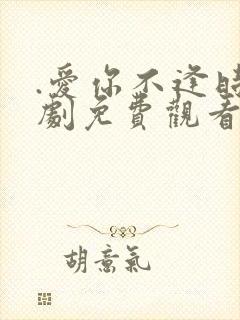 .愛你不逢時
劇免費觀看
胡意氣